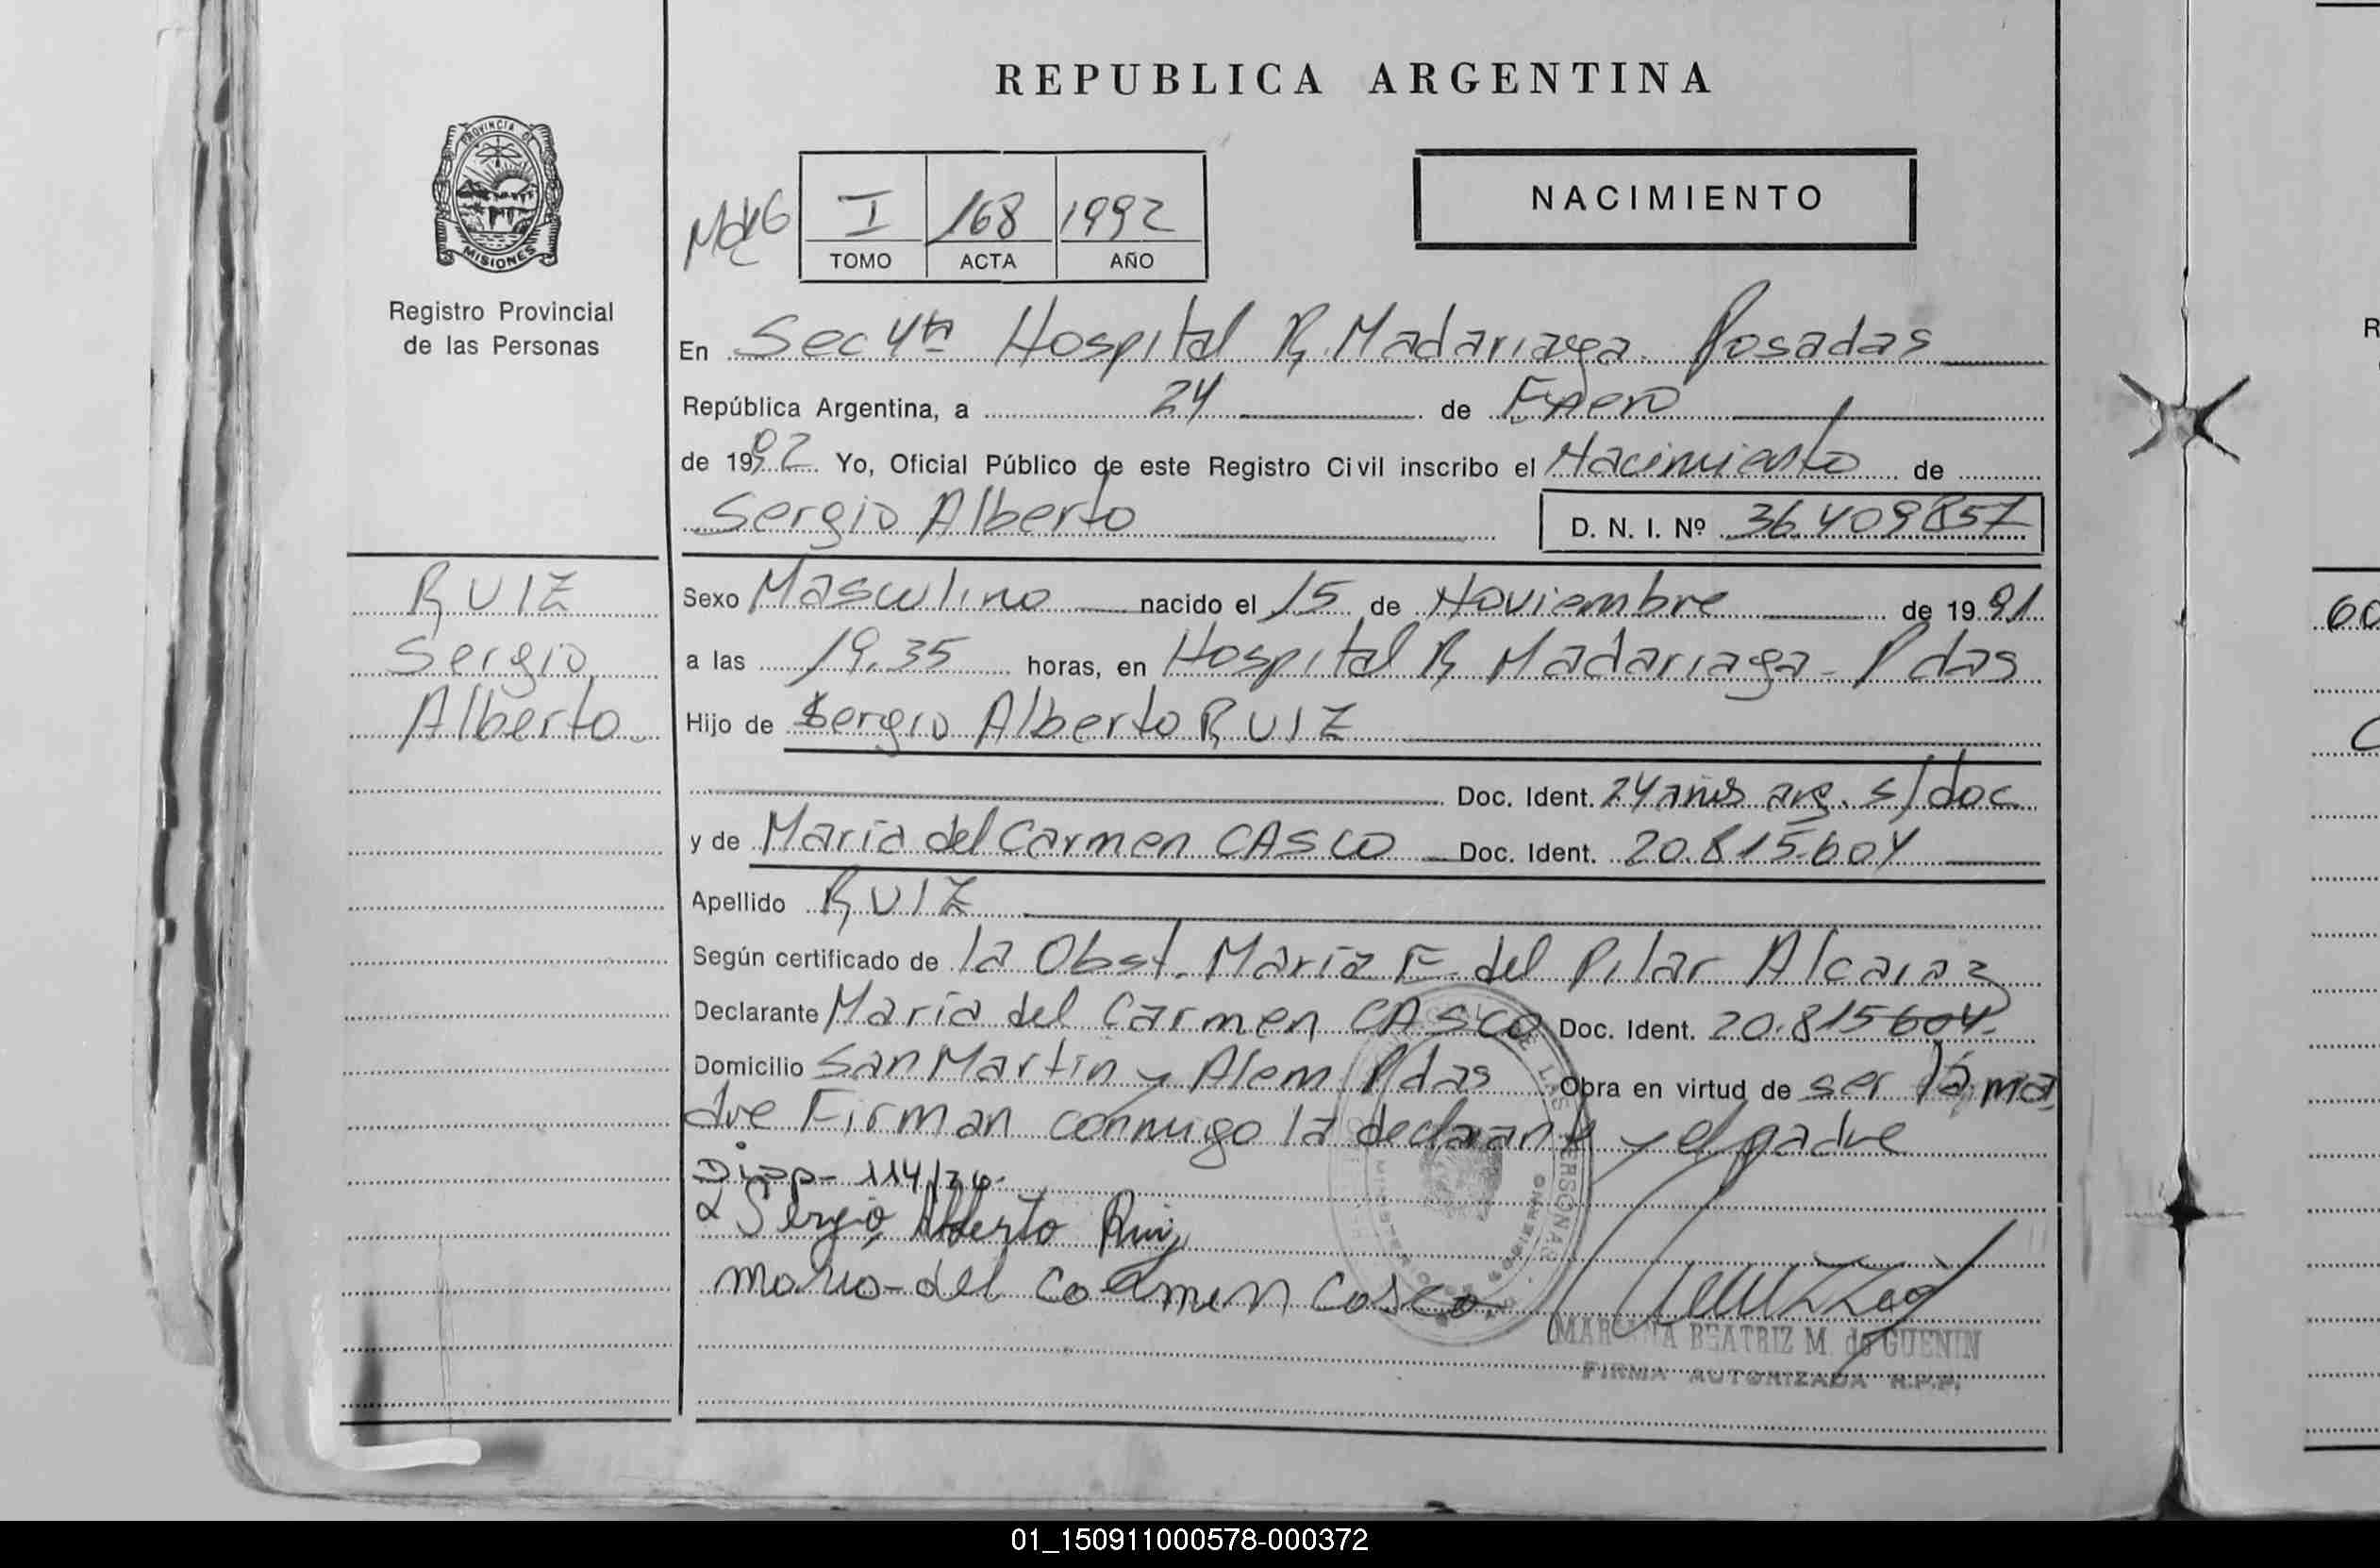 REPUBLICA ARGENTINA
PROVINCIA DE
MISIONES
Registro Provincial
de las Personas
I 168 1992
TOMO ACTA AÑO
NACIMIENTO
En Sec 4ta Hospital R. Madariaga Posadas
República Argentina, a 24 de Enero
de 1992 Yo, Oficial Público de este Registro Civil inscribo el Nacimiento de
Sergio Alberto D. N. I. Nº 36.409857
RUIZ
Sergio
Alberto
Sexo Masculino nacido el 15 de Noviembre de 1991
a las 19.35 horas, en Hospital R Madariaga - Pdas
Hijo de Sergio Alberto RUIZ
Doc. Ident. 24 años arg. s/doc
y de María del Carmen CASCO Doc. Ident. 20.815.604
Apellido RUIZ
Según certificado de la Obst. María E. del Pilar Alcaraz
Declarante María del Carmen CASCO Doc. Ident. 20.815604.
Domicilio San Martín y Alem Pdas Obra en virtud de ser la ma
dre Firman conmigo la declarante y el padre
Disp- 114/
Sergio Alberto Ruiz
maria del carmen casco
BEATRIZ M. de GUENIN
FIRMA AUTORIZADA R.P.P.
01_150911000578-000372